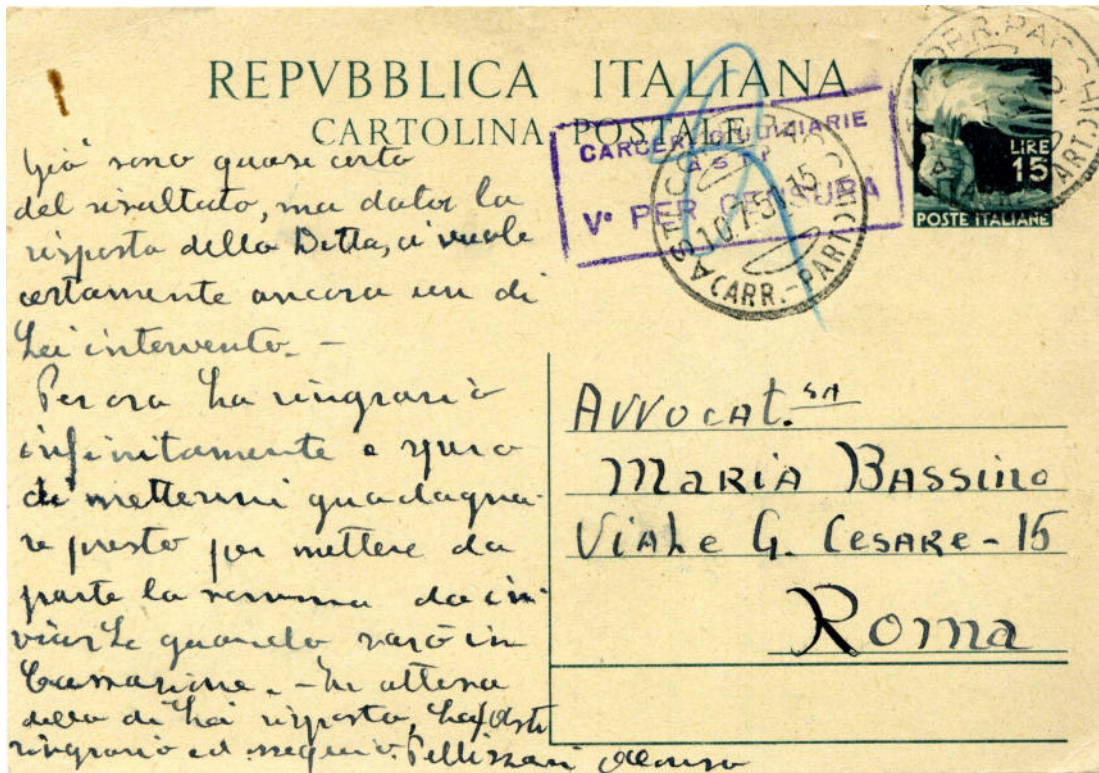 REPVBBLICA ITALIANA
CARTOLINA POSTALE
CARCERI GIUDIZIARIE
ASTI
V° PER CENSURA
10.7.5 15
CARR.-PART.
LIRE
15
POSTE ITALIANE
Già sono quasi certo
del risultato, ma dator la
risposta della Ditta, ci vuole
certamente ancora un di
Lei intervento. -
Per ora La ringrazio
infinitamente e spero
di mettermi guadagna-
re presto per mettere da
parte la somma da in-
viarLe quando sarò in
Cassazione. - In attesa
della di Lei risposta, La
ringrazio ed ossequio. Pellizzari
Asti
AVVOCAT.SA
MARIA BASSINO
ViALe G. CESARE-15
Roma